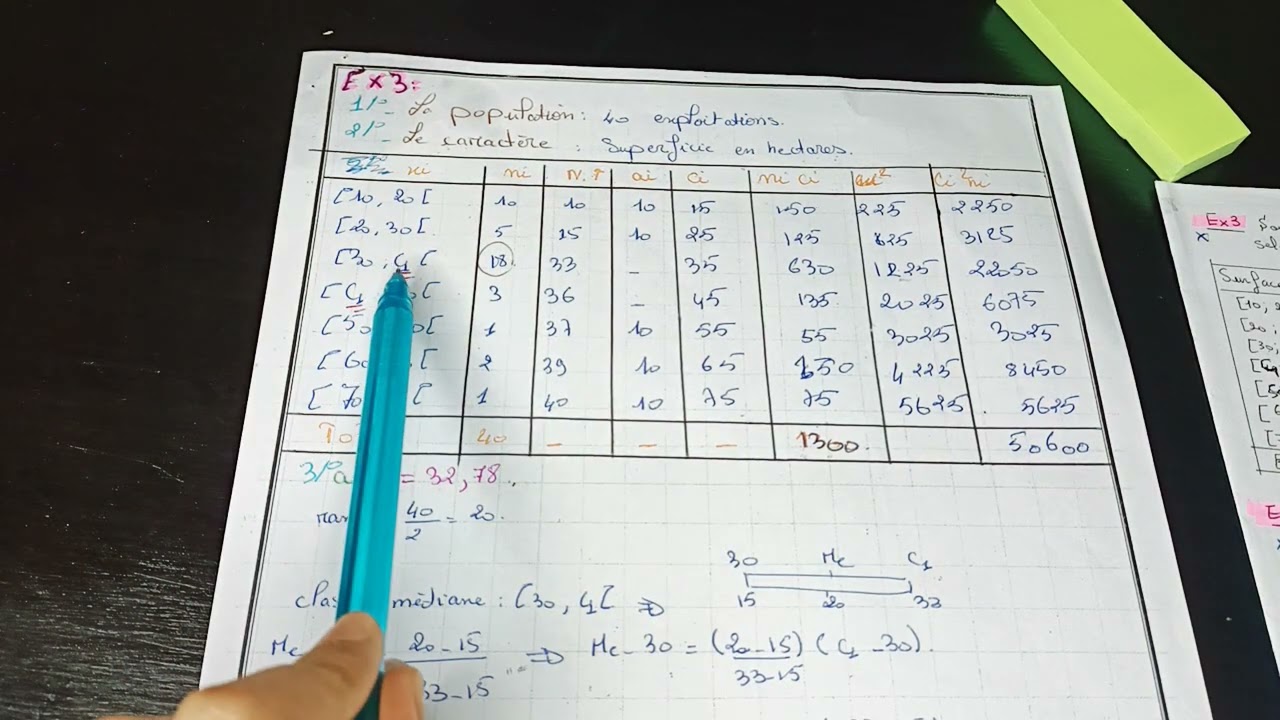 Ex3:
1/°- La population: 40 exploitations.
2/°- Le caractère : Superficie en hectares.
xi ni N.↑ ai ci ni ci ci² ci²ni
[10, 20[ 10 10 10 15 150 225 2250
[20, 30[. 5 15 10 25 125 625 3125
[30, C1[ 18 33 _ 35 630 1225 22050
[C1 0[ 3 36 _ 45 135 2025 6075
[50 0[ 1 37 10 55 55 3025 3025
[60 [ 2 39 10 65 130 4225 8450
[70 [ 1 40 10 75 75 5625 5625
To 40 _ _ _ 1300 50600
3/° = 32,78.
40/2 = 20.
30 Me C1
15 20 33
médiane : [30, C1[ ⇒
Me 20-15/33-15 ⇒ Me-30 = (20-15)/33-15 (C1-30).
Ex3
Surface
[10,
[20,
[30,